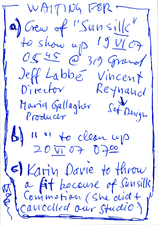 WAITING FOR
a) Crew of "Sunsilk"
to show up 19 VI 07
0845 @ 319 Grand
Jeff Labbé Vincent
Director Reynaud
Maria Gallagher Set Design
Producer
b) " " to clean up
20 VI 07 0700
c) Karin Davie to throw
a fit because of Sunsilk
Commotion (she did +
cancelled our studio)